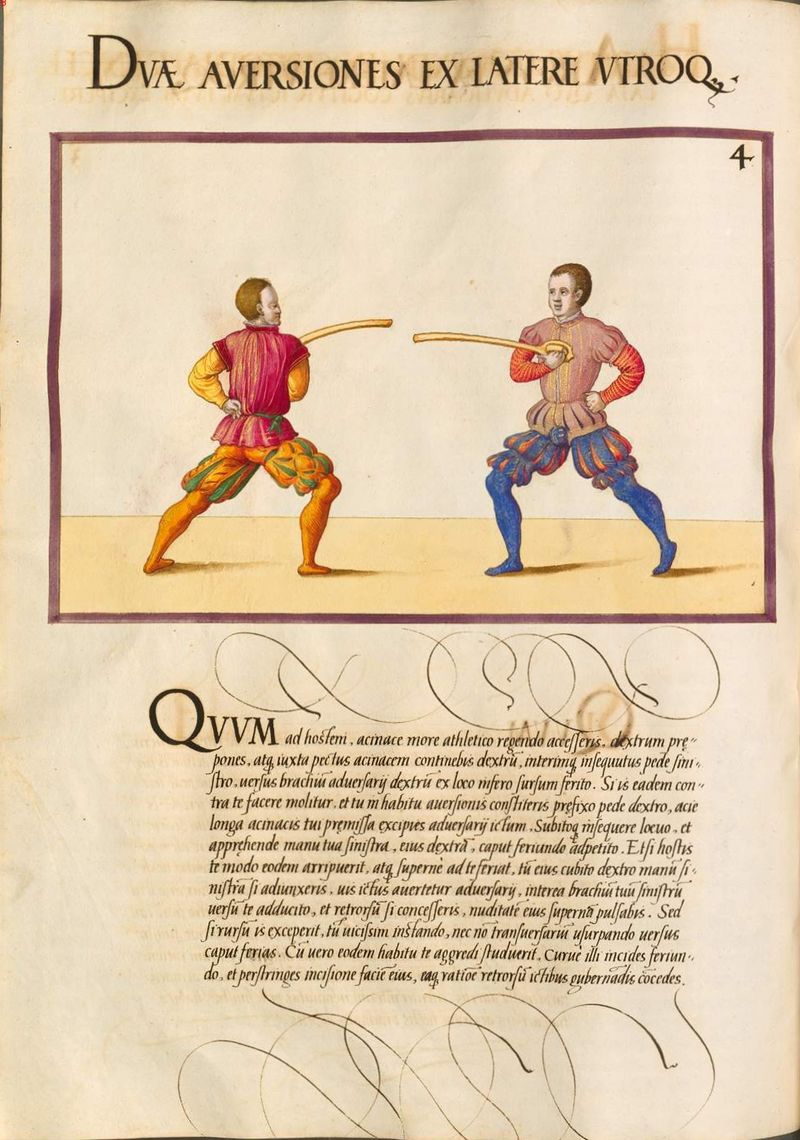 DVÆ AVERSIONES EX LATERE VTROQ.
4
QVVM ad hostem, acinace more athletico regendo accesseris, dextrum prę-
pones, atq, iuxta pectus acinacem continebis dextrū, interimq insequutus pede sini-
stro, uersus brachiū aduersarij dextrū ex loco infero sursum ferito. Si is eadem con-
tra te facere molitur, et tu in habitu auersionis constiteris prefixo pede dextro, acie
longa acinacis tui pręmissa excipies aduersarij ictum, Subitoq insequere loeuo, et
apprehende manu tua sinistra, eius dextrā, caput feriundo adpetito. Et si hostis
te modo eodem arripuerit, atq superne ad te feriat, tū eius cubito dextro manū si-
nistrā si adiunxeris, uis ictus auertetur aduersarij, interea brachiū tuū sinistrū
uersū te adducito, et retrorsū si concesseris, nuditatē eius supernā pulsabis. Sed
si rursū is exceperit, tū uicissim instando, nec nō transuersariā usurpando uersus
caput ferias. Cū uero eodem habitu te aggredi studuerit, Curue illi incides feriun-
do, et perstringes incisione facie eius, eaq ratiōe retrorsū ictibus gubernādis cōcedes.